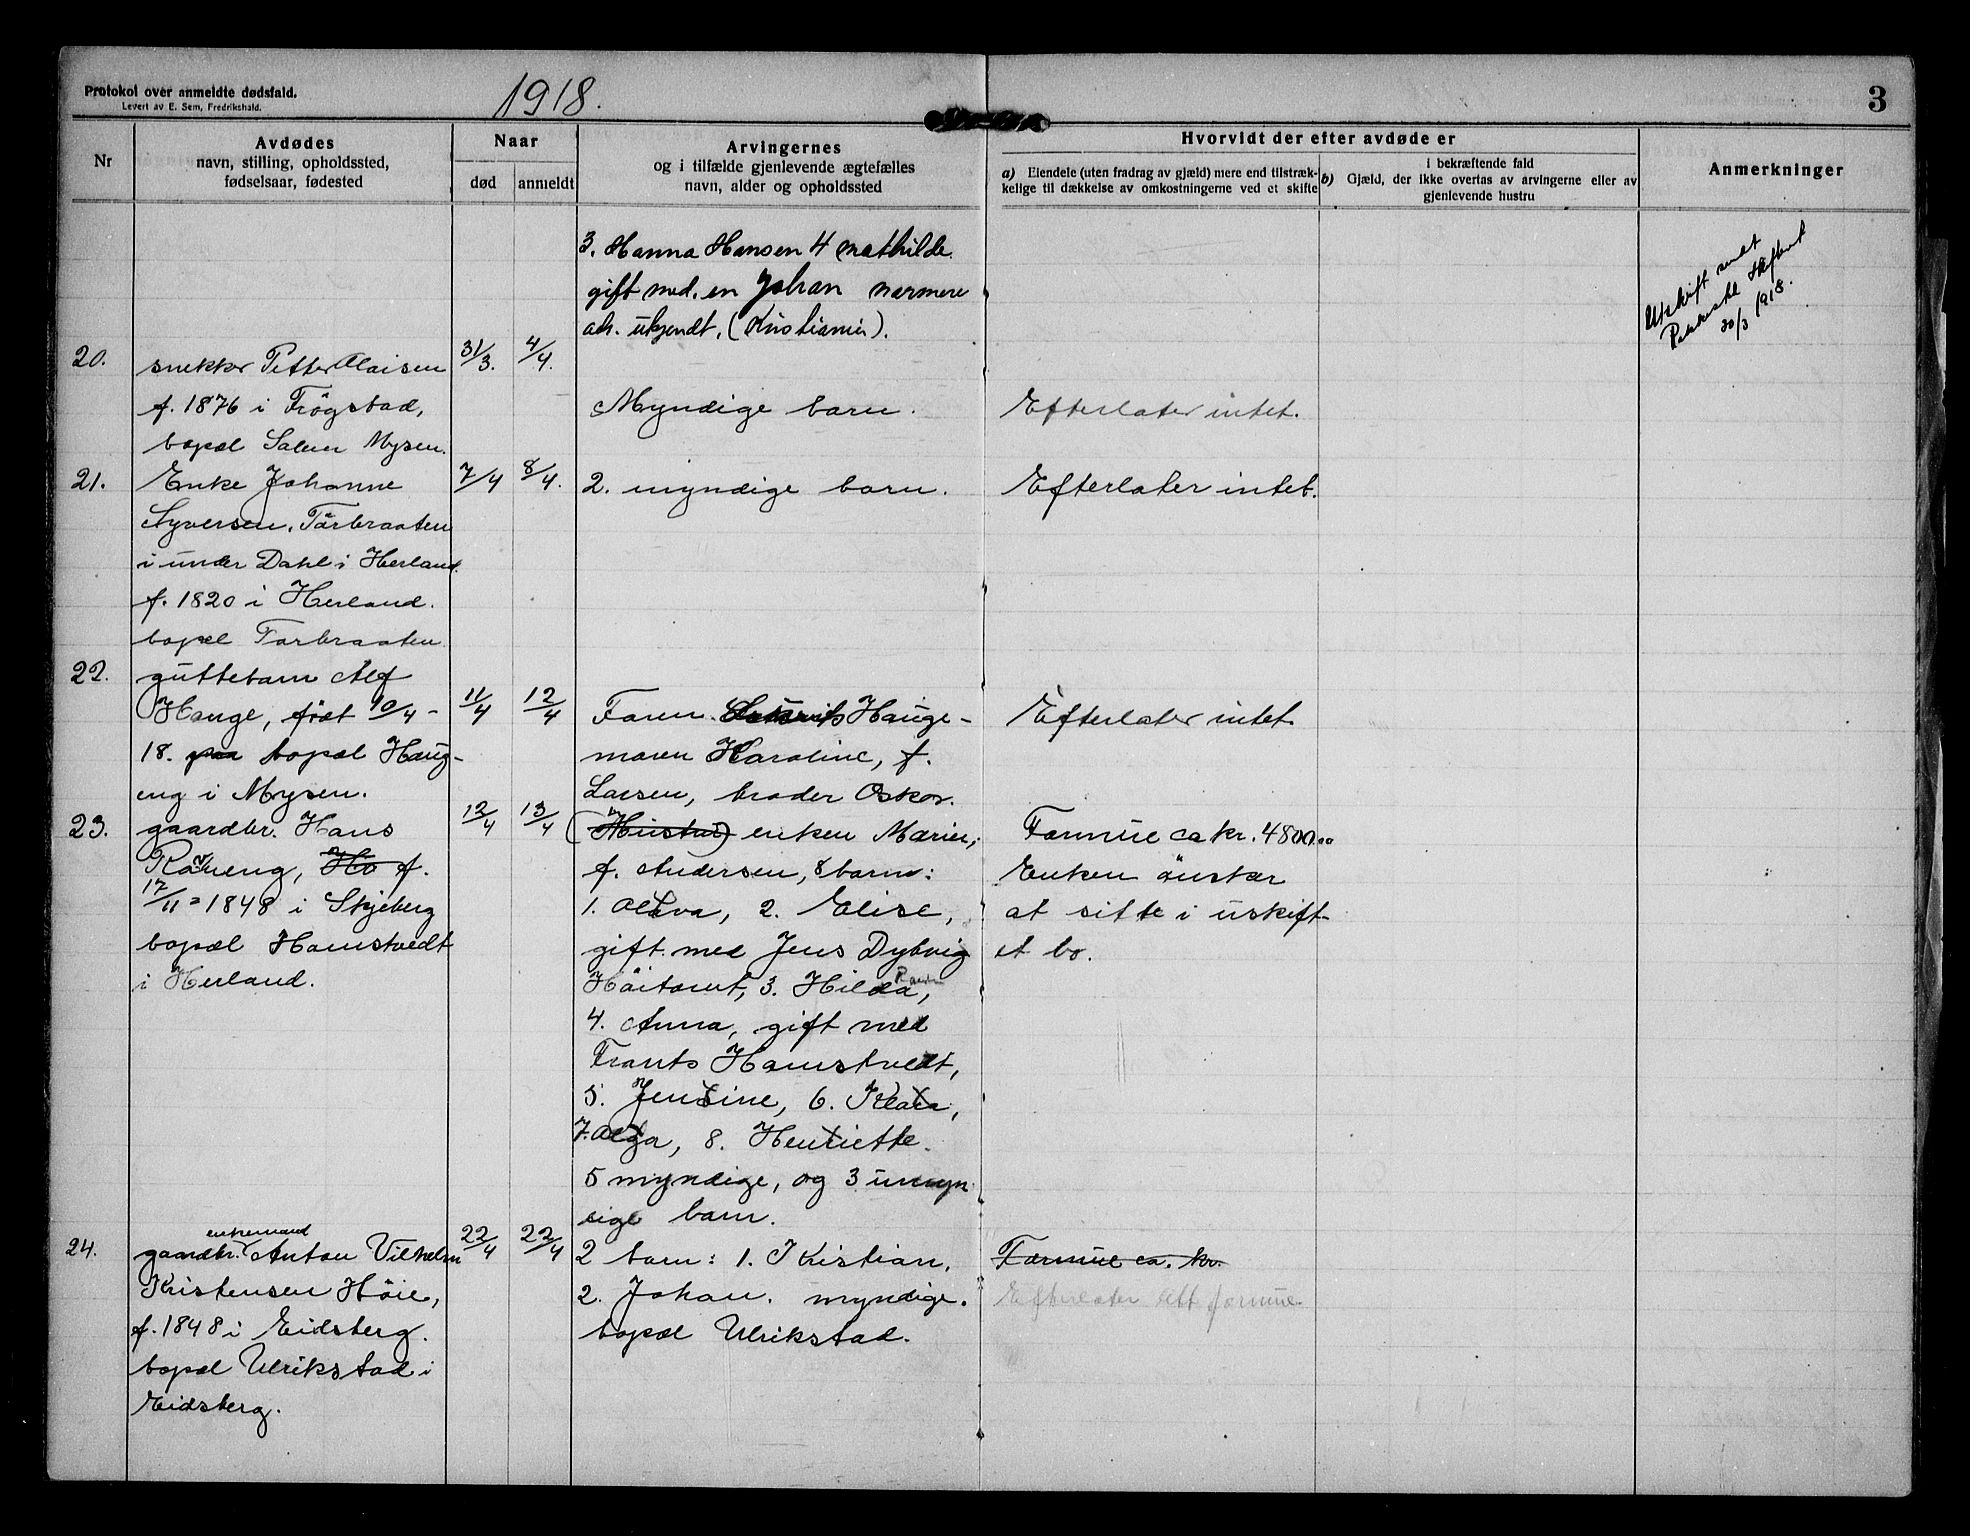 Protokol over anmeldte dødsfald.
Levert av E. Sem, Fredrikshald.
1918.
3
Nr
Avdødes
navn, stilling, opholdssted,
fødselsaar, fødested
Naar
død
anmeldt
Arvingernes
og i tilfælde gjenlevende ægtefælles
navn, alder og opholdssted
Hvorvidt der efter avdøde er
a) Eiendele (uten fradrag av gjæld) mere end tilstræk-
kelige til dækkelse av omkostningerne ved et skifte
I bekræftende fald
b) Gjæld, der ikke overtas av arvingerne eller av
gjenlevende hustru
Anmerkninger
3. Hanna Hansen 4 Mathilde
gift med en Johan nærmere
adr. ukjendt. (Kristiania).
Utskrift sendt
30/3 1918.
20.
snekker Petter Olaisen
f. 1876 i Trögstad,
bopæl Salem Mysen.
31/3.
4/4.
Myndige barn.
Efterlater intet.
21.
Enke Johanne
Syversen, Tårbraaten
i under Dahl i Herland
f. 1820 i Herland.
bopæl Tarbraaten
7/4
8/4.
2. myndige barn.
Efterlater intet.
22.
guttebarn Alf
Hauge, föst 10/4-
18. paa bopæl Haug-
eng i Mysen.
11/4
12/4
Faren Hauge-
moren Karoline, f.
Larsen, broder Oskar.
Efterlater intet.
23.
gaardbr. Hans
Råveng, Ho f.
17/11=1848 i Skjeberg
bopæl Hamstvedt
i Herland.
12/4
13/4
(Hustru) enken Marie,
f. Andersen, 8 barn:
1. Olava, 2. Elise,
gift med Jens Dybvig
Höitomt, 3. Hilda,
4. Anna, gift med
Frants Hamstvedt,
5. Jensine, 6. Klara,
7. Olga, 8. Henriette.
5 myndige, og 3 umyn
dige barn.
Formue ca kr. 4800.00
Enken önsker
at sitte i uskift-
et bo.
24.
enkemand
gaardbr. Anton Vilhelm
Kristensen Höie,
f. 1848 i Eidsberg.
bopæl Ulrikstad i
Eidsberg.
22/4
22/4
2 barn: 1. Kristian,
2. Johan. myndige.
bopæl Ulrikstad.
Formue ca. kr.
Efterlater formue.